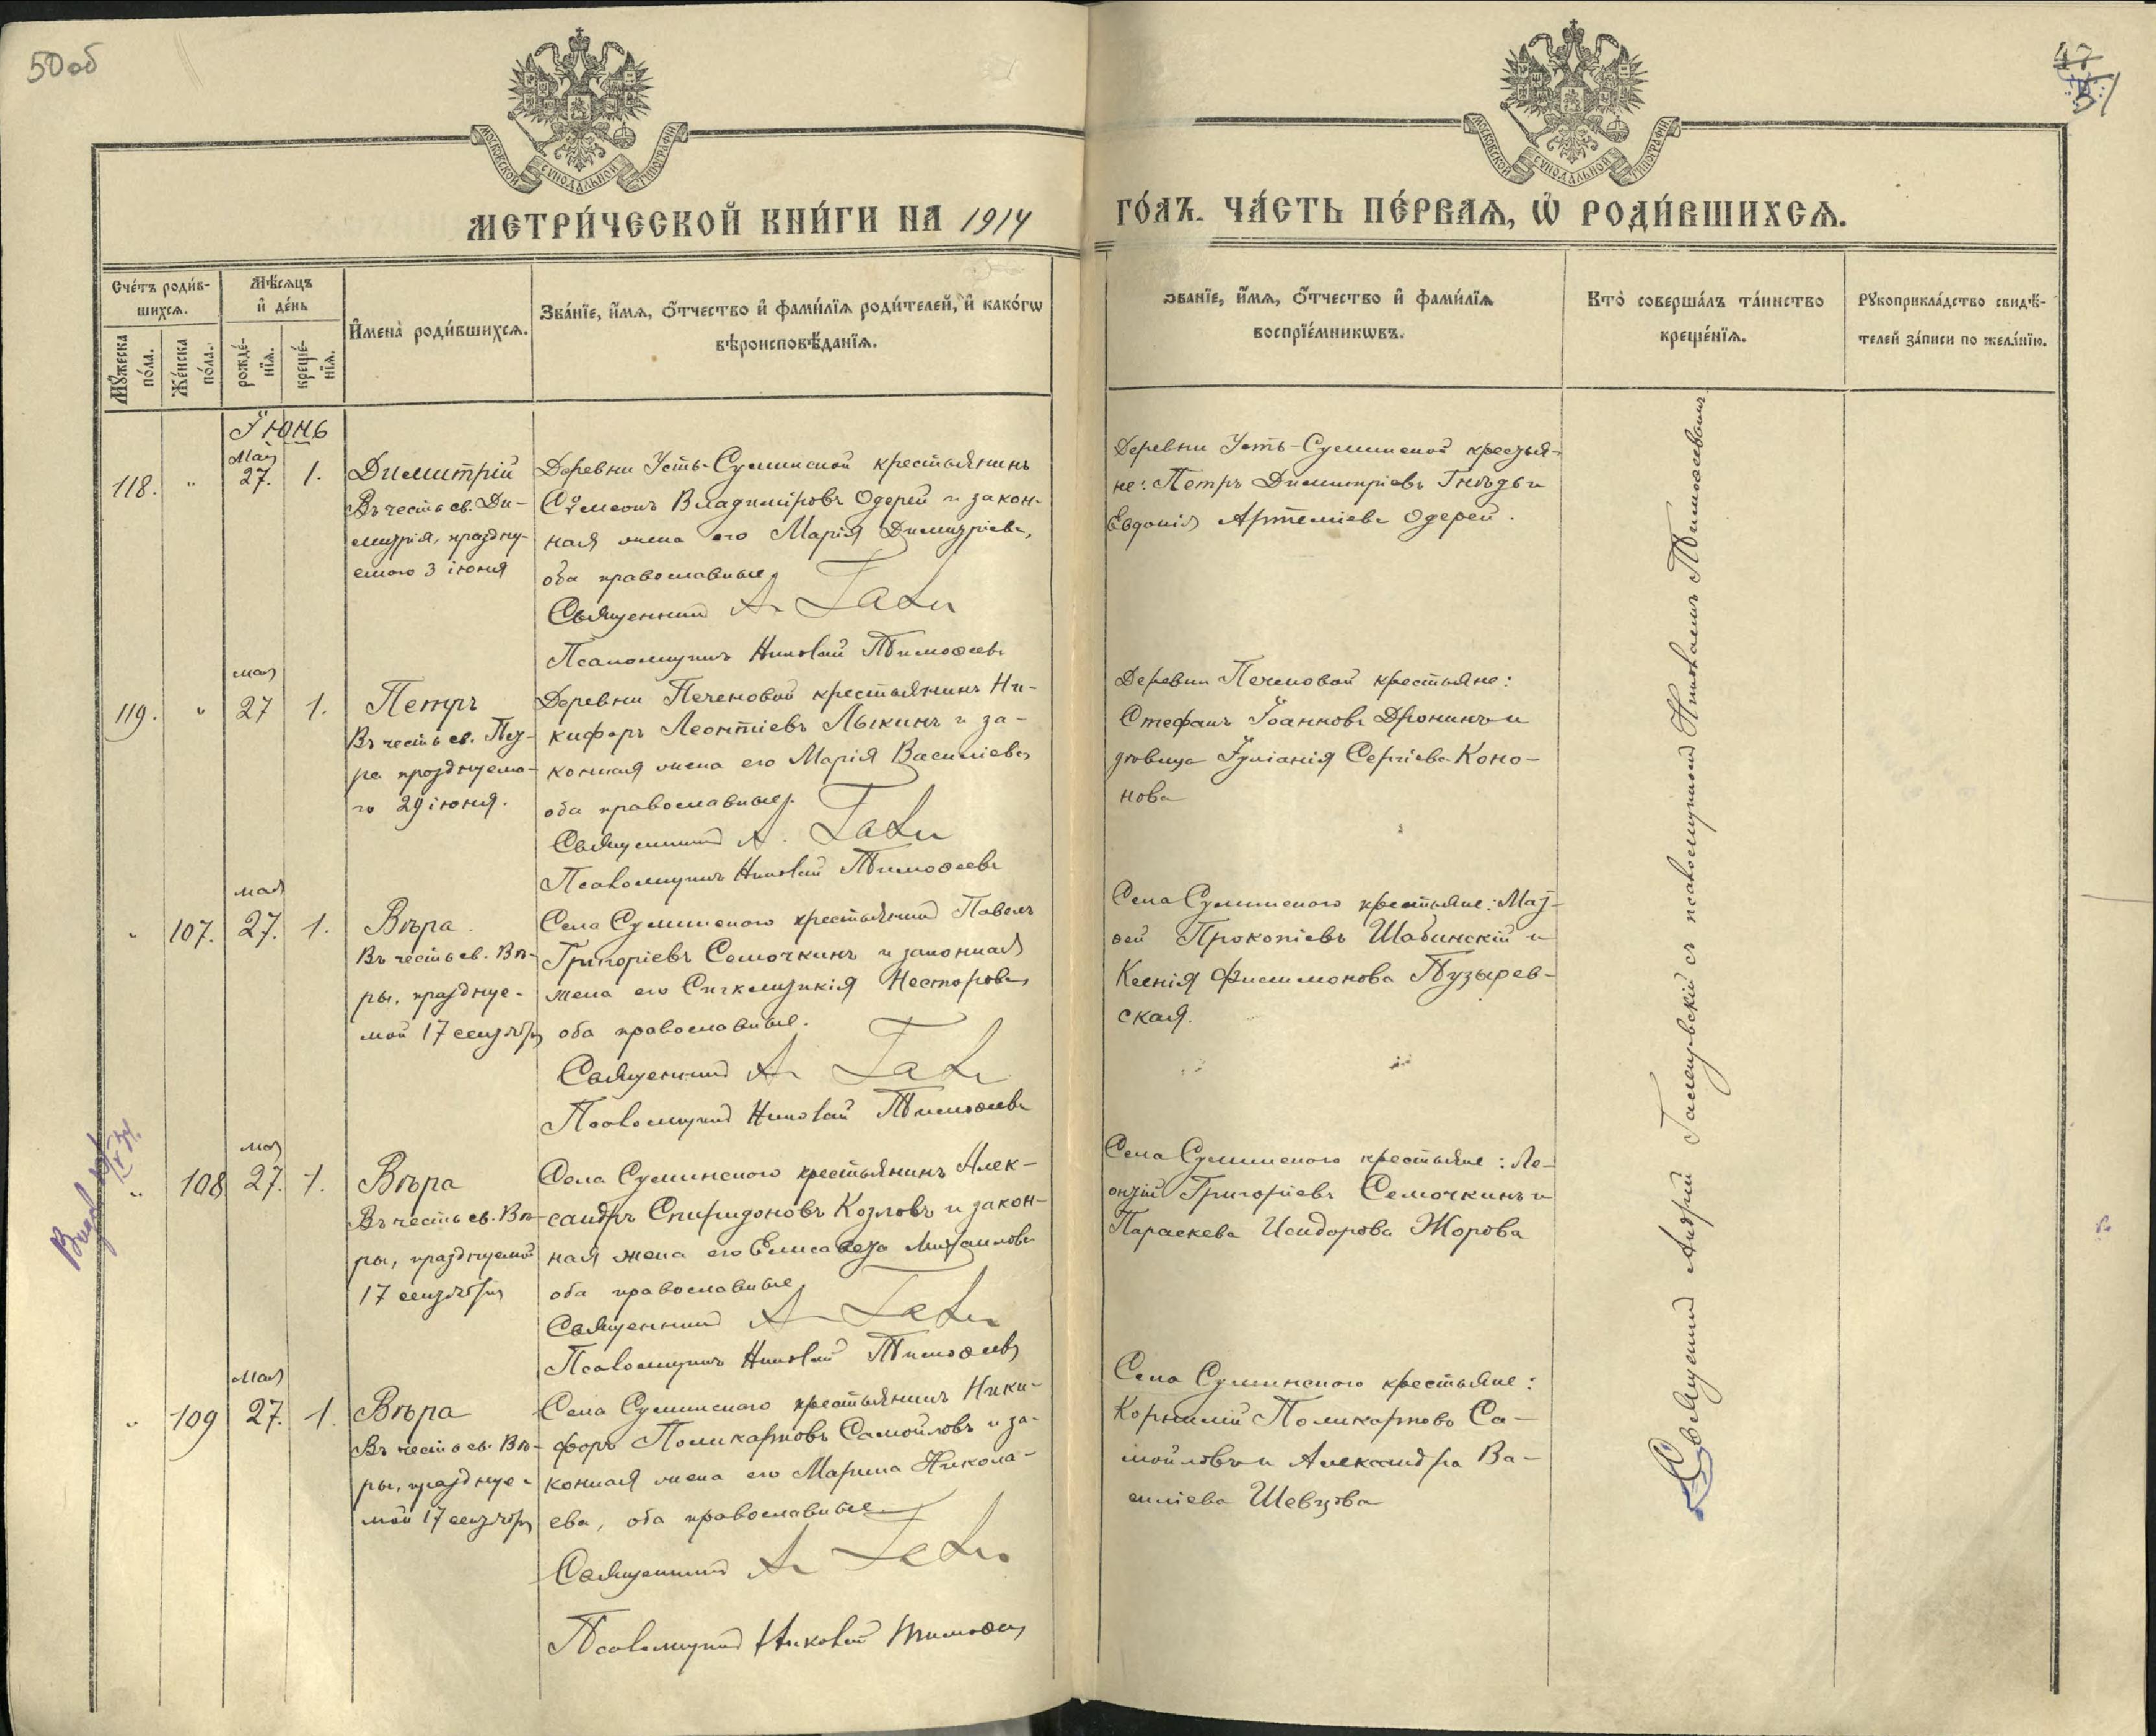 50 об
47
51
МОСКОВСКОЙ СѴНОДАЛЬНОЙ ТИПОГРАФІИ
МОСКОВСКОЙ СѴНОДАЛЬНОЙ ТИПОГРАФІИ
МЕТРИ́ЧЕСКОЙ КНИ́ГИ НА 1914
ГО́ДЪ. ЧА́СТЬ ПЕ́РВАѦ, Ѡ҆ РОДИ́ВШИХСѦ.
Сче́тъ роди́в-
шихсѧ.
Мѣ́сѧцъ
и҆ де́нь
Мꙋ́жеска
по́ла.
Же́нска
по́ла.
рожде́-
нїѧ.
креще́-
нїѧ.
И҆мена̀ роди́вшихсѧ.
Зва́нїе, и҆́мѧ, ѻ҆́тчество и҆ фами́лїѧ роди́телей, и҆ како́гѡ
вѣроисповѣ́данїѧ.
зва́нїе, и҆́мѧ, ѻ҆́тчество и҆ фами́лїѧ
воспрїе́мникѡвъ.
Кто̀ соверша́лъ та́инство
креще́нїѧ.
Рꙋкоприкла́дство свидѣ́-
телей за́писи по жела́нїю.
Іюнь
118. " Мая 27. 1.
Димитрій
Въ честь св. Ди-
митрія, праздну-
емого 3 іюня
Деревни Усть-Суминской крестьянинъ
Сѵмеонъ Владиміровъ Одерей и закон-
ная жена его Марія Димитріева,
оба православные
Священникъ А.
Псаломщикъ Николай Тимоѳеевъ
Деревни Усть-Суминской крестья-
не: Петръ Димитріевъ Гнѣды и
Евдокія Артеміева Одерей.
119. " мая 27 1.
Петръ
Въ честь св. Пет-
ра празднуема-
го 29 іюня.
Деревни Печеновой крестьянинъ Ни-
кифоръ Леонтіевъ Лыкинъ и за-
конная жена его Марія Василіева
оба православные.
Священникъ А.
Псаломщикъ Николай Тимоѳеевъ
Деревни Печеновой крестьяне:
Стефанъ Іоанновъ Дронинъ и
дѣвица Іуліанія Сергіева Коно-
нова
" 107. мая 27. 1.
Вѣра
Въ честь св. Вѣ-
ры, празднуе-
мой 17 сентября
Села Суминского крестьянинъ Павелъ
Григоріевъ Семочкинъ и законная
жена его Сигклитикія Несторова
оба православные.
Священникъ А.
Псаломщикъ Николай Тимоѳеевъ
Села Суминского крестьяне: Мат-
ѳей Прокопіевъ Шабинскій и
Ксенія Филимонова Пузырев-
ская.
" 108 мая 27. 1.
Вѣра
Въ честь св. Вѣ-
ры, празднуемой
17 сентября
Села Суминского крестьянинъ Алек-
сандръ Спиридоновъ Козловъ и закон-
ная жена его Елисавета Михаилова
оба православные
Священникъ А.
Псаломщикъ Николай Тимоѳеевъ
Села Суминского крестьяне: Ле-
онтій Григоріевъ Семочкинъ и
Параскева Исидорова Жорова
" 109 Мая 27. 1.
Вѣра
Въ честь св. Вѣ-
ры, празднуе-
мой 17 сентября
Села Суминского крестьянинъ Ники-
форъ Поликарповъ Самойловъ и за-
конная жена его Марина Никола-
ева, оба православные
Священникъ А.
Псаломщикъ Николай Тимоѳеевъ
Села Суминского крестьяне:
Корнилій Поликарповъ Са-
мойловъ и Александра Ва-
силіева Шевцова
Священникъ Андрей съ псаломщикомъ Николаемъ Тимоѳеевымъ